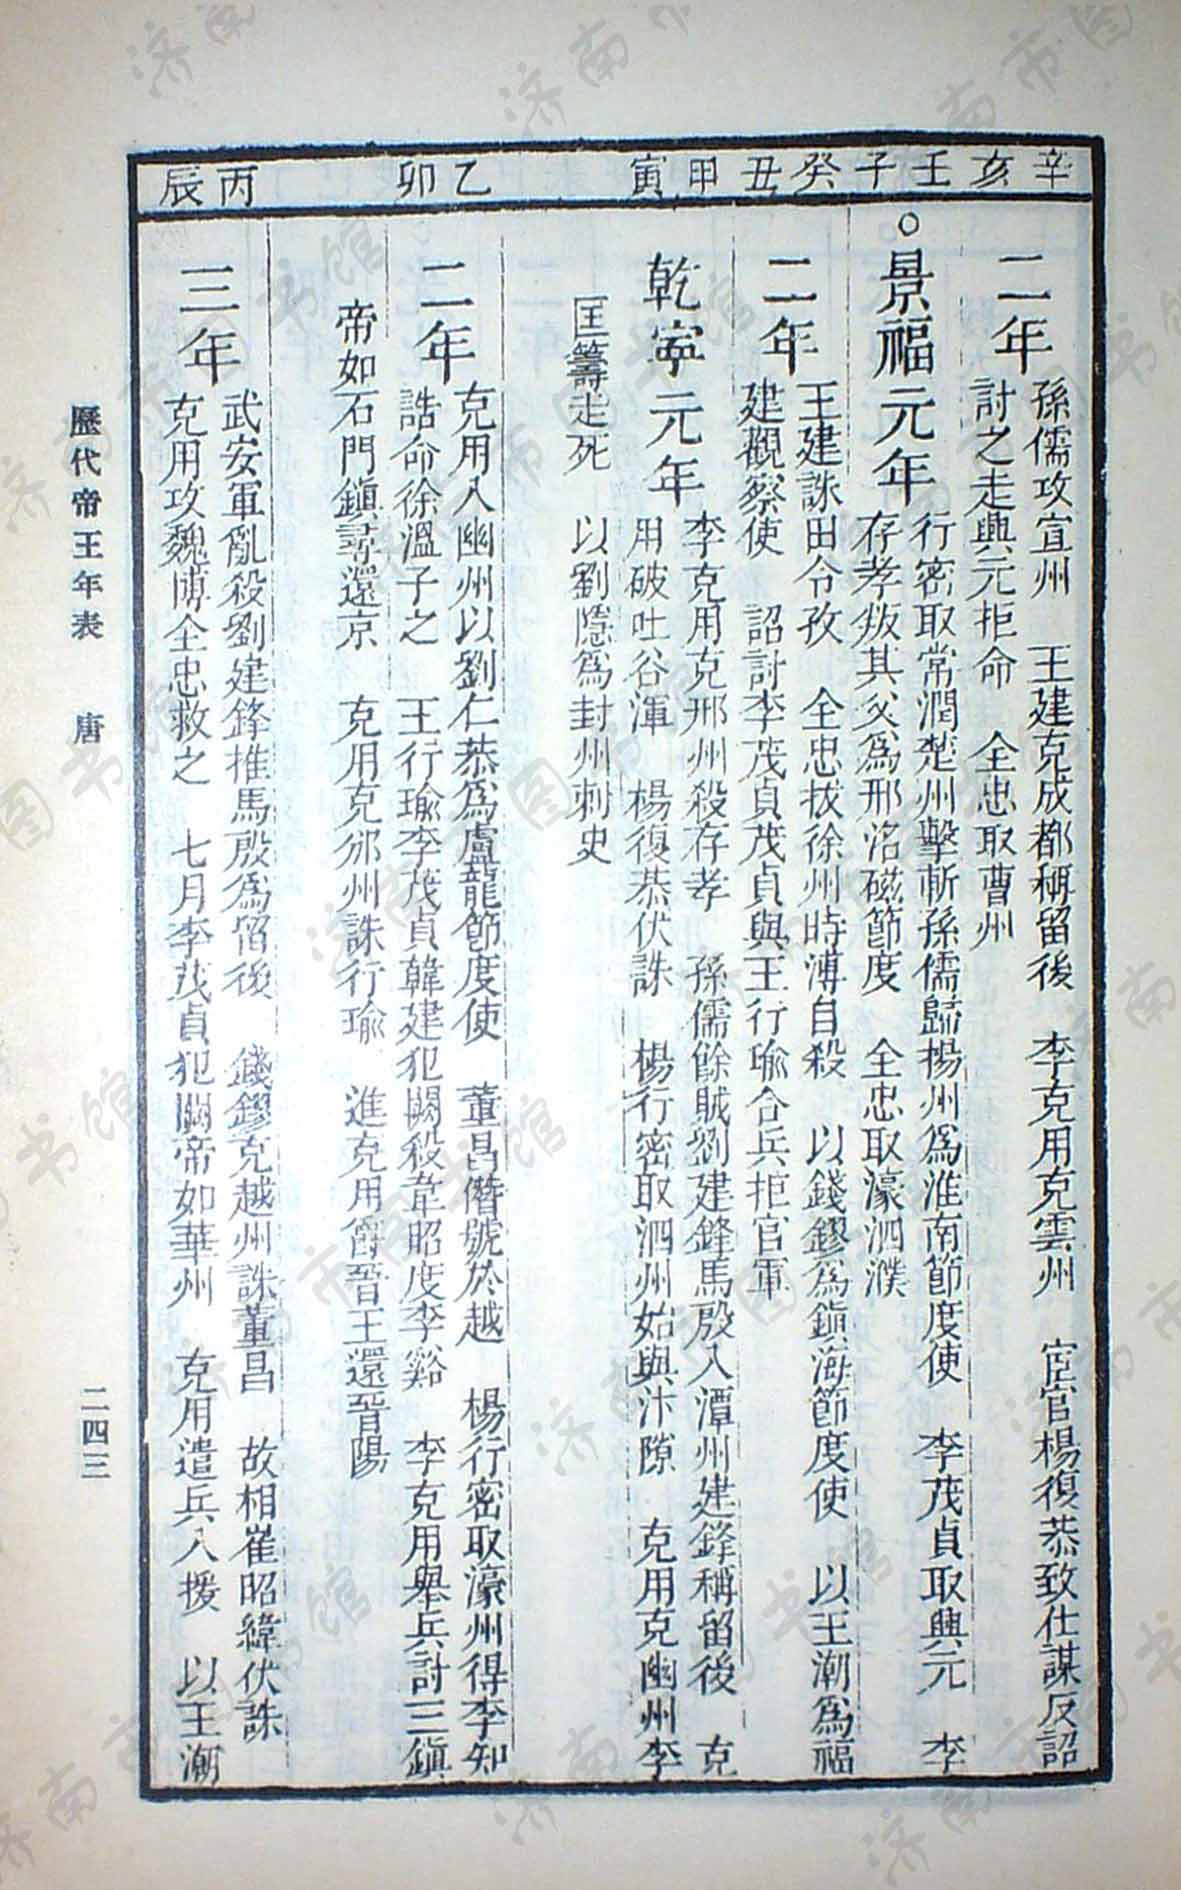 辛亥
壬子
癸丑
甲寅
乙卯
丙辰
二年
孫儒攻宣州　王建克成都稱留後　李克用克雲州　宦官楊復恭致仕謀反詔
討之走興元拒命　全忠取曹州
○景福元年
行密取常潤楚州擊斬孫儒歸楊州爲淮南節度使　李茂貞取興元　李
存孝叛其父爲邢洺磁節度　全忠取濠泗濮
二年
王建誅田令孜　全忠拔徐州時溥自殺　以錢鏐爲鎮海節度使　以王潮爲福
建觀察使　詔討李茂貞茂貞與王行瑜合兵拒官軍
乾寧元年
李克用克邢州殺存孝　孫儒餘賊劉建鋒馬殷入潭州建鋒稱留後　克
用破吐谷渾　楊復恭伏誅　楊行密取泗州始與汴隙　克用克幽州李
匡籌走死　以劉隱爲封州刺史
二年
克用入幽州以劉仁恭爲盧龍節度使　董昌僭號於越　楊行密取濠州得李知
誥命徐溫子之　王行瑜李茂貞韓建犯闕殺韋昭度李谿　李克用舉兵討三鎮
帝如石門鎮尋還京　克用克邠州誅行瑜　進克用爵晉王還晉陽
三年
武安軍亂殺劉建鋒推馬殷爲留後　錢鏐克越州誅董昌　故相崔昭緯伏誅
克用攻魏博全忠救之　七月李茂貞犯闕帝如華州　克用遣兵入援　以王潮
歷代帝王年表　唐
二四三
济南市图书馆